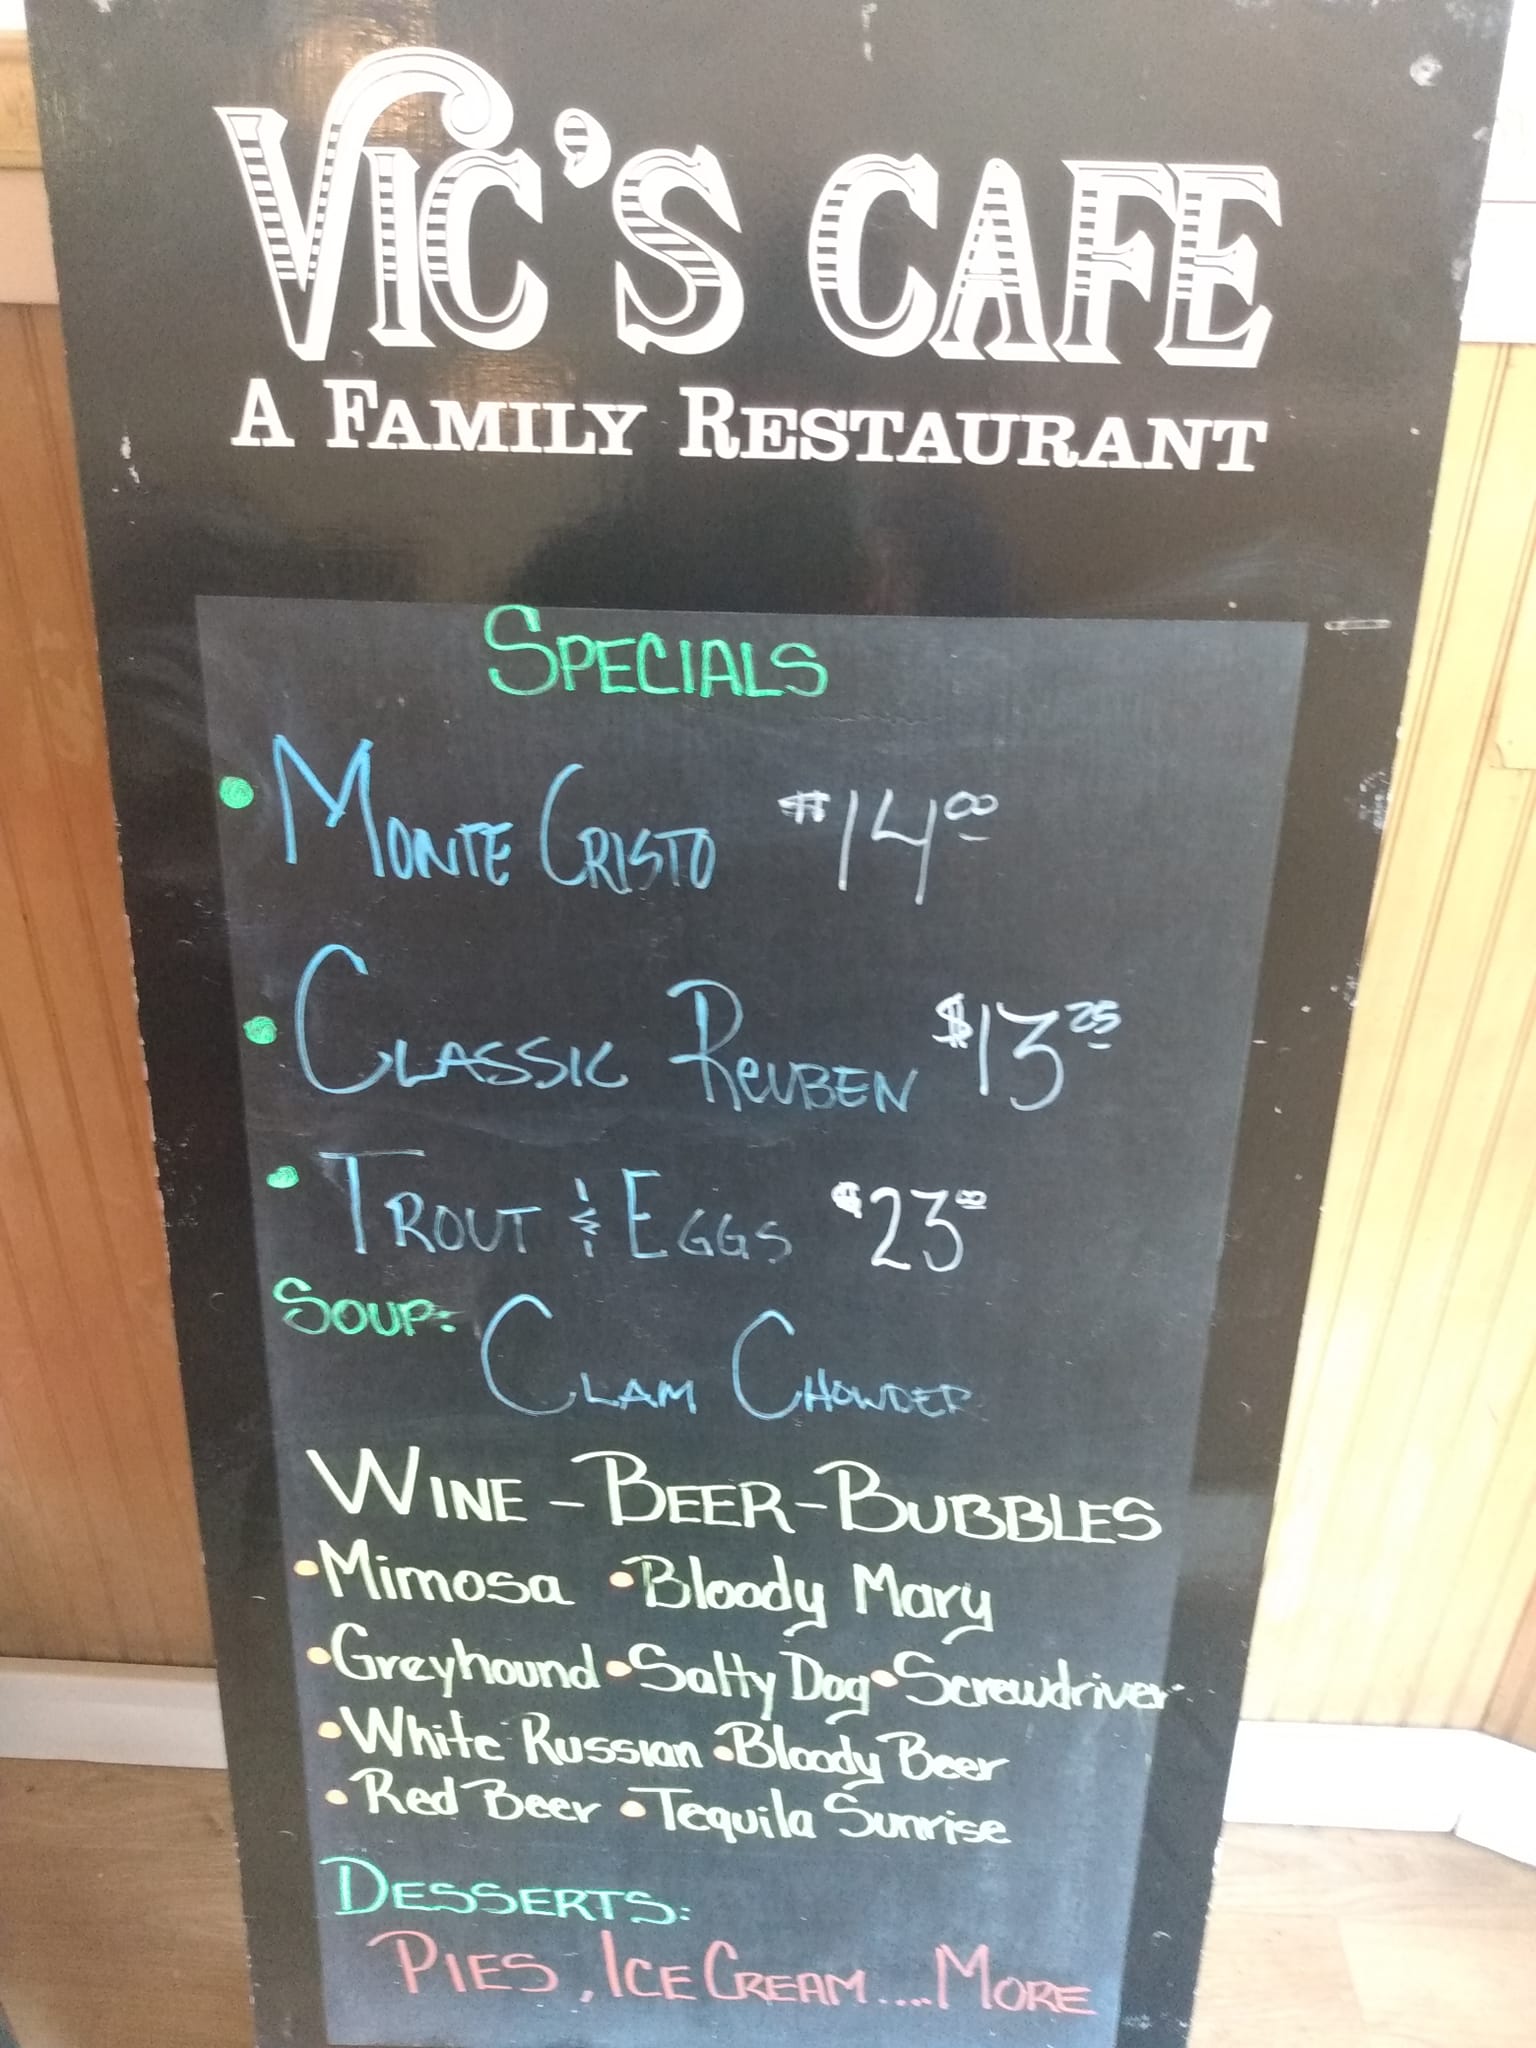 VIC'S CAFE
A FAMILY RESTAURANT
SPECIALS
• MONTE CRISTO $14.00
• CLASSIC REUBEN $13.25
• TROUT & EGGS $23.00
SOUP:
CLAM CHOWDER
WINE - BEER - BUBBLES
•Mimosa •Bloody Mary
•Greyhound •Salty Dog •Screwdriver
•White Russian •Bloody Beer
•Red Beer •Tequila Sunrise
DESSERTS:
PIES, ICE CREAM....MORE